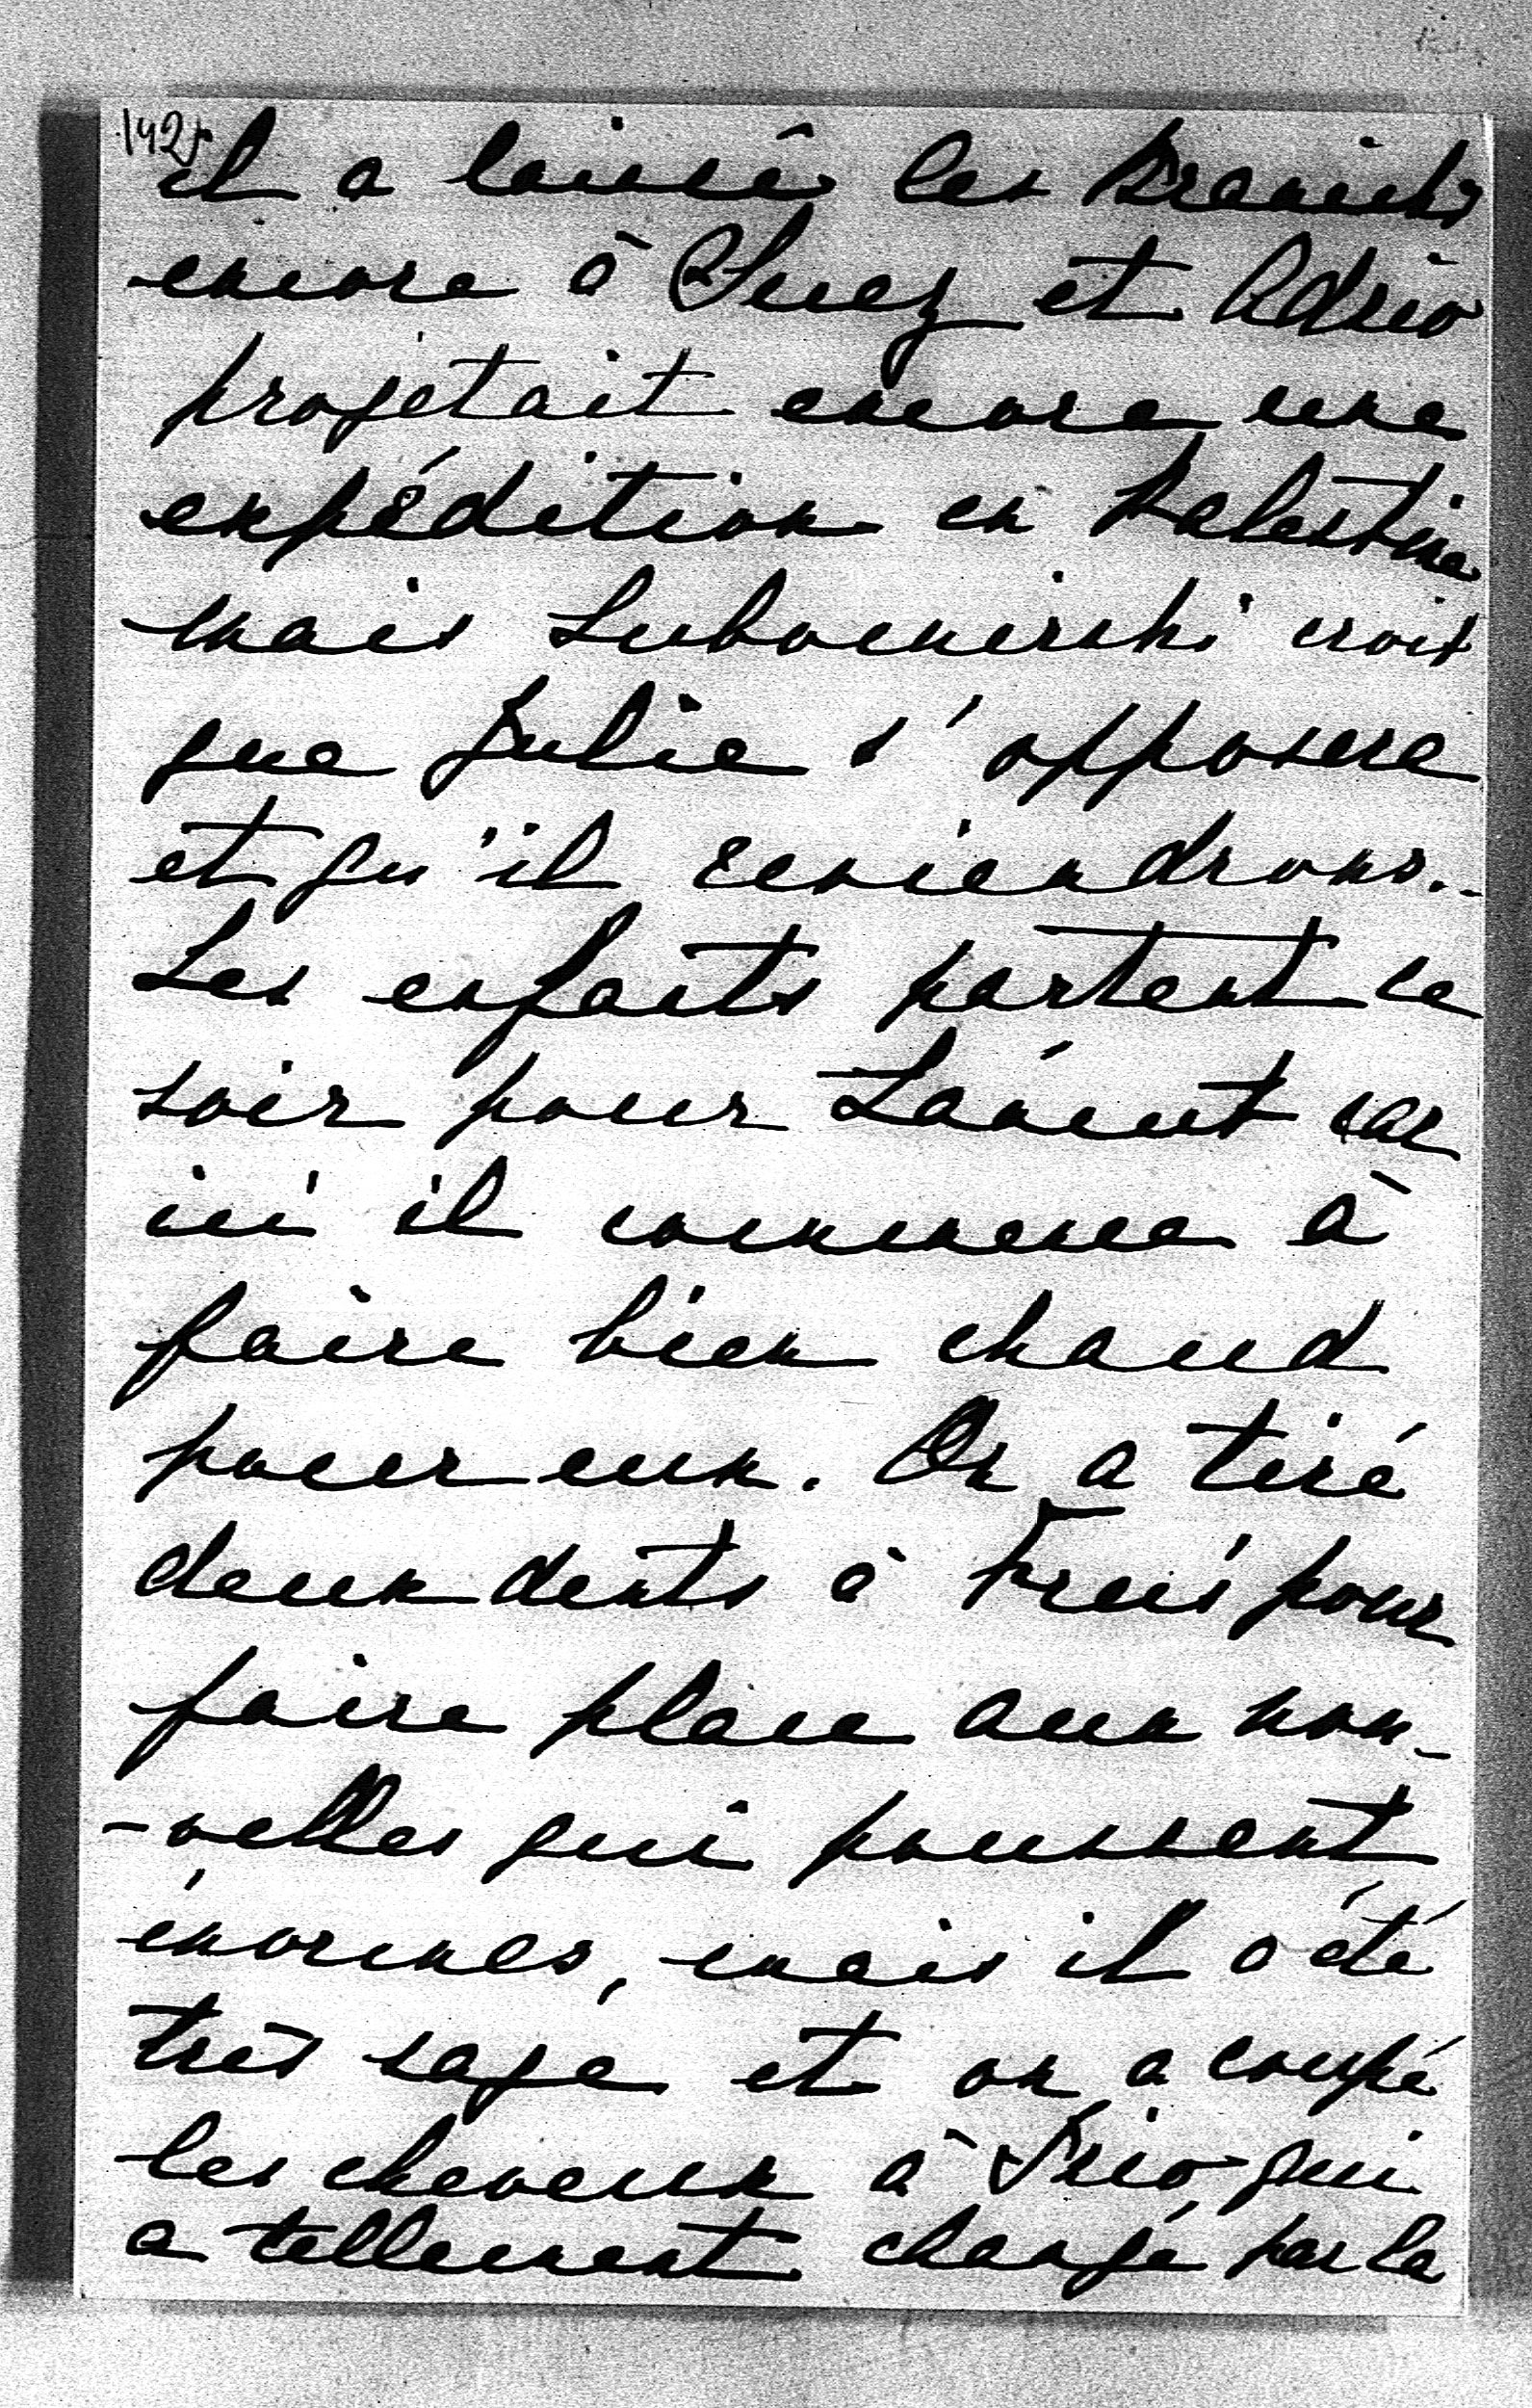 142
il a laissé les Branicki
encore à Suez et Adzio
projetait encore une
expédition en Palestine
mais Lubomirski croit
que Julie s'opposera
et qu'il reviendrons..
Les enfants partent ce
soir pour Łańcut car
ici il commence à
faire bien chaud
pour eux. On a tiré
deux dents à pour
faire place aux nou-
-velles qui poussent
énormes, mais il a été
très sage et on a coupé
les cheveux à qui
a tellement changé par la